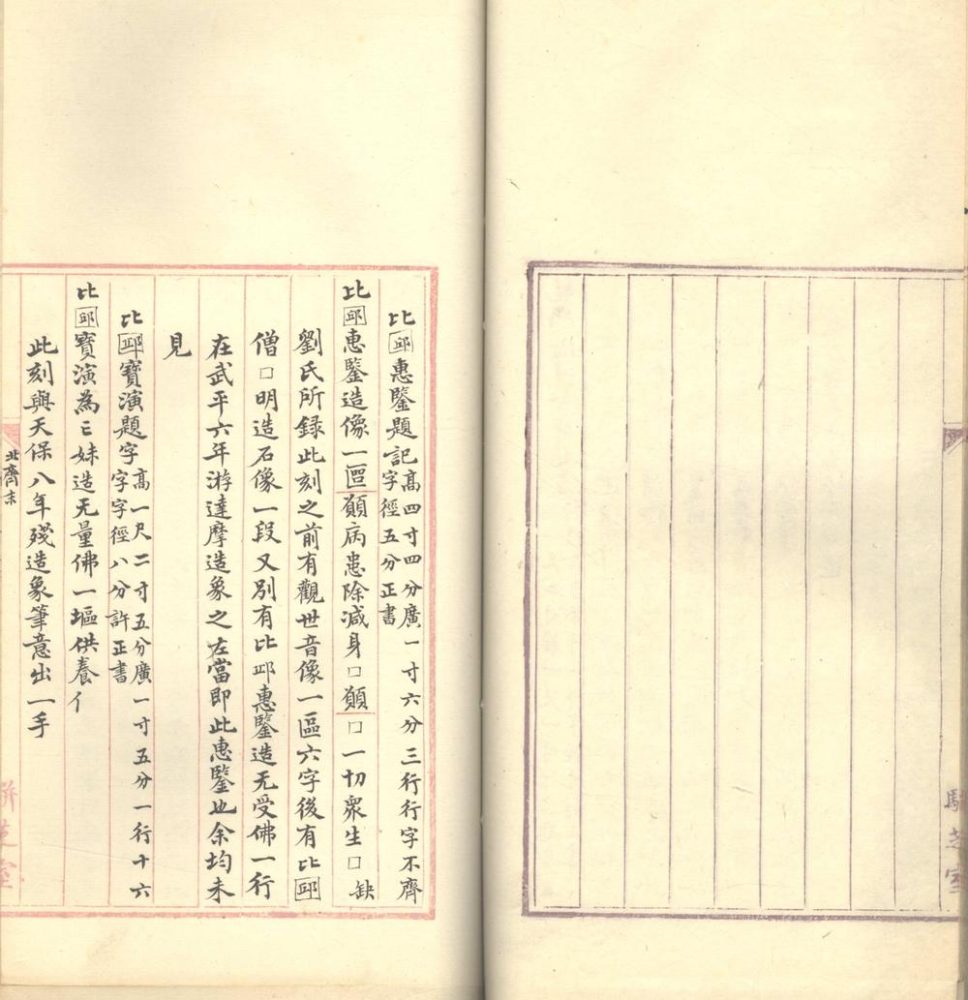 比邱惠鑒題記高四寸四分廣一寸六分三行行字不齊
字徑五分正書
比邱惠鑒造像一區願病患除減身□願□一切衆生□缺
劉氏所録此刻之前有觀世音像一區六字後有比邱
僧□明造石像一段又别有比邱惠鑒造无受佛一行
在武平六年游達摩造象之左當即此惠鑒也余均未
見
比邱寶演題字高一尺二寸五分廣一寸五分一行十六
字字徑八分許正書
比邱寶演為亡妹造无量佛一塸供養亻
此刻與天保八年殘造象筆意出一手
北齊末